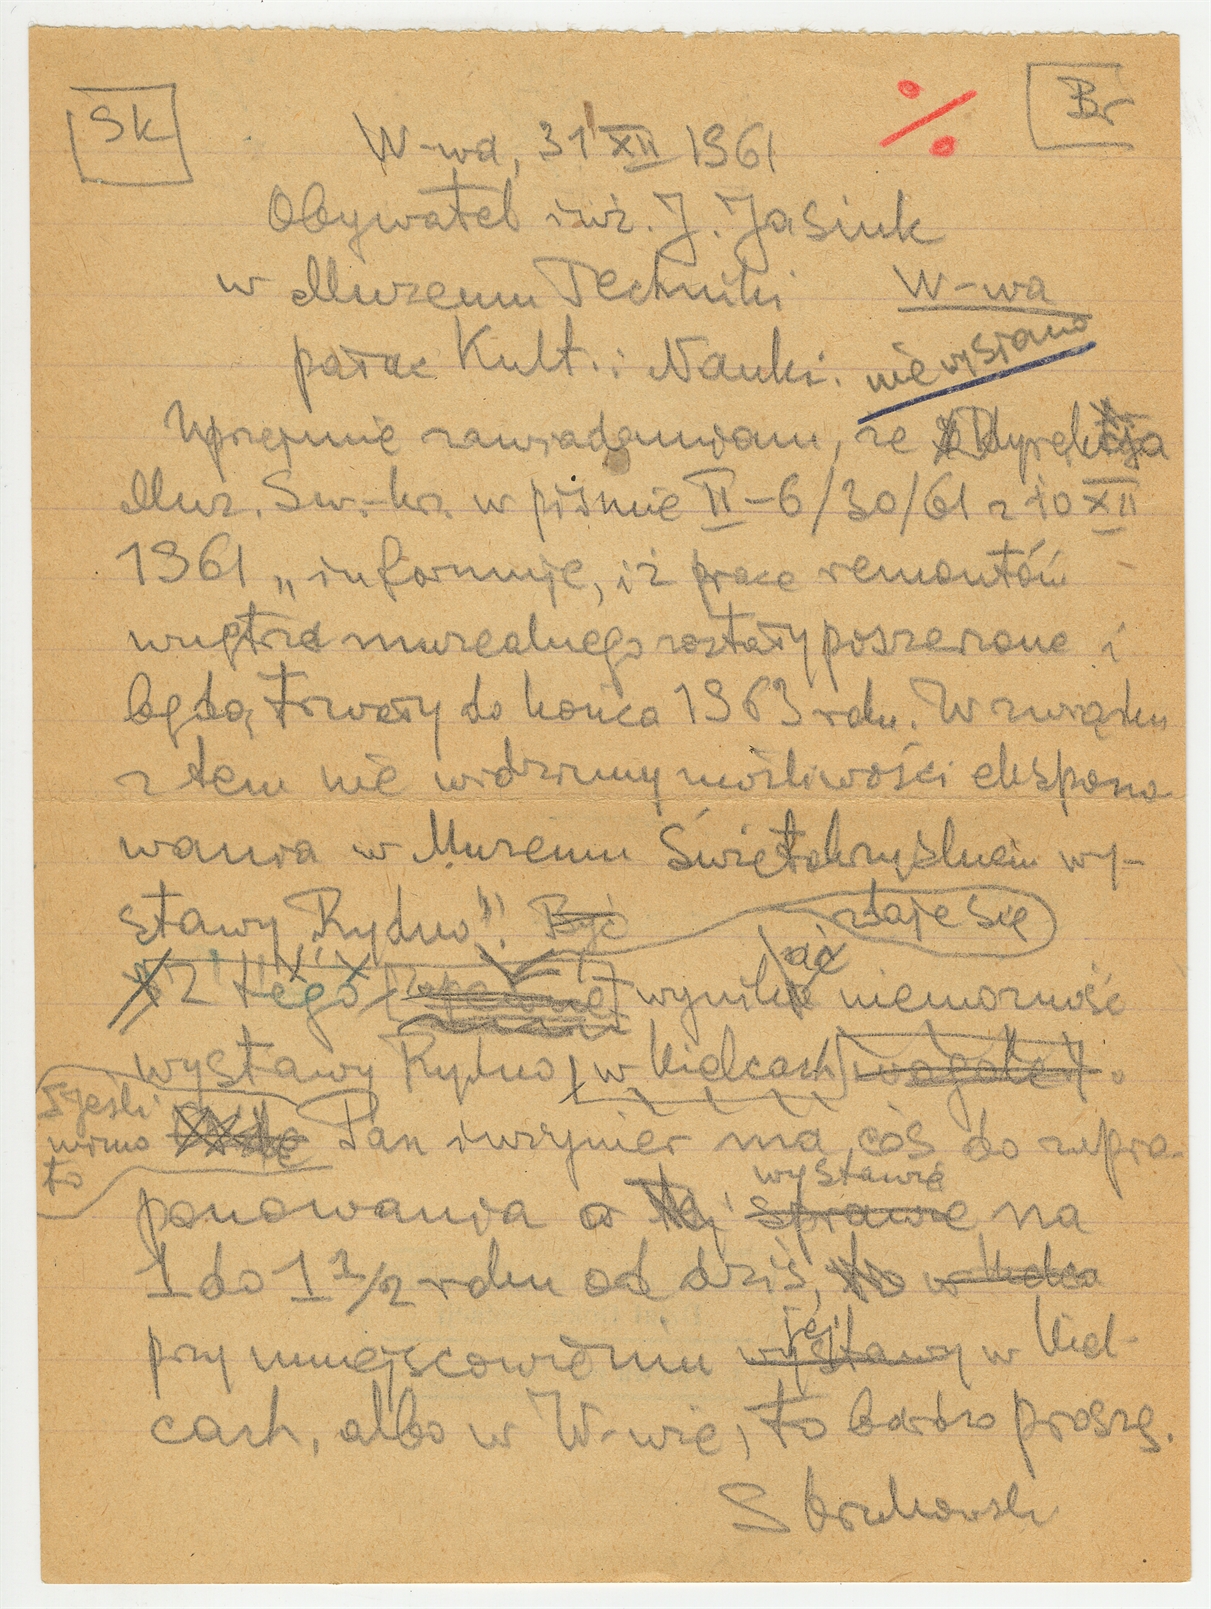 Sk
Br
W-wa, 31 XII 1961
Obywatel inż. J. Jasiuk
w Muzeum Techniki W-wa
pałac Kult. i Nauki. nie wysłano
Uprzejmie zawiadamiam, że Dyrekcja
Muz. Św.-krz. w piśmie II-6/30/61 z 10 XII
1961 „informuje, iż prace remontów
wnętrza muzealnego zostały poszerzone i
będą trwały do końca 1963 roku. W związku
z tem nie widzimy możliwości ekspono
wania w Muzeum Świętokrzyskiem wy-
stawy „Rydno”. Być
zdaje się
Z tego zupełnie wynikać niemożność
wystawy Rydno w Kielcach wogóle.
Jeśli
mimo Pan inżynier ma coś do zapro-
to
wystawie
ponowania o tej sprawie na
1 do 1 1/2 roku od dziś, to w Kielca
jej
przy umiejscowieniu wystawy w Kiel-
cach, albo w W-wie, to bardzo proszę.
S Krukowski